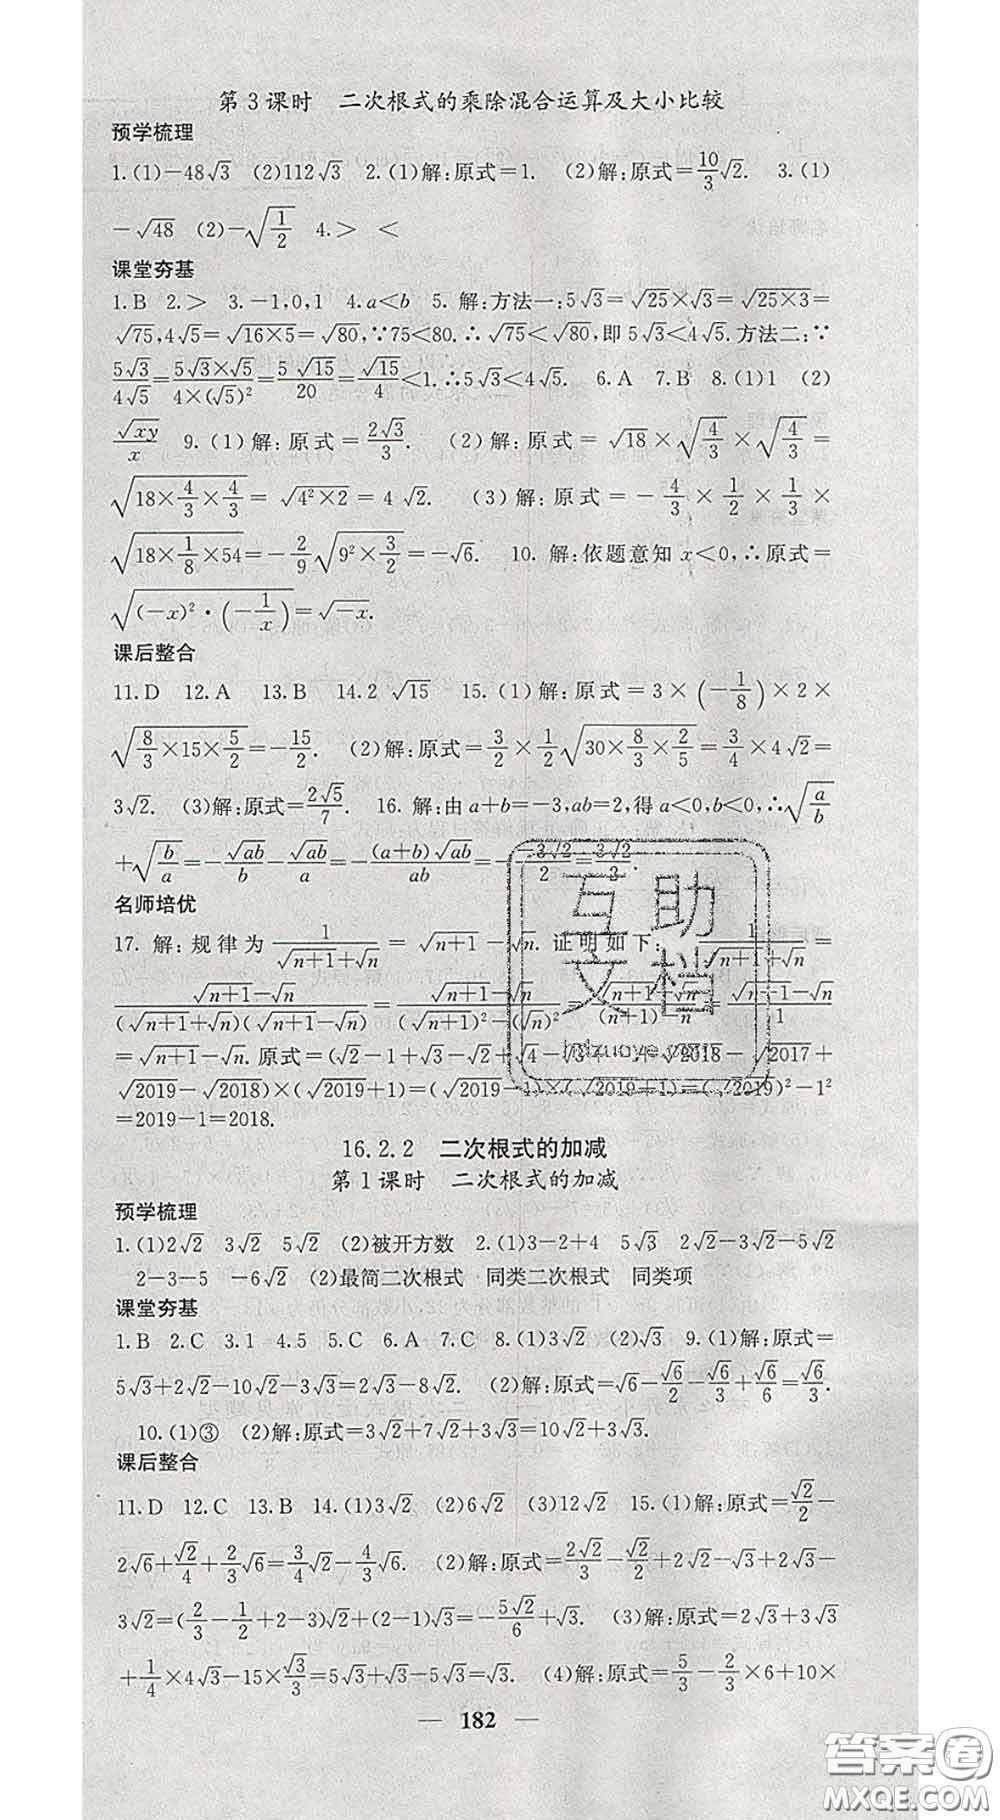 第3课时　二次根式的乘除混合运算及大小比较
预学梳理
1.(1)－48√3　(2)112√3　2.(1)解:原式＝1.　(2)解:原式＝10/3√2.　3.(1)
－√48　(2)－√(1/2)　4.＞　＜
课堂夯基
1.B　2.＞　3.－1,0,1　4.a＜b　5. 解:方法一:5√3＝√25×√3＝√(25×3)＝
√75,4√5＝√(16×5)＝√80,∵75＜80.∴√75＜√80,即5√3＜4√5.方法二:∵
5√3/4√5＝5√3×√5/4×(√5)²＝5√15/20＝√15/4＜1.∴5√3＜4√5.　6.A　7.B　8.(1)1　(2)
√xy/x　9.(1)解:原式＝2√3/3.　(2)解:原式＝√18×√(4/3)×√(4/3)＝
√(18×4/3×4/3)＝√(4²×2)＝4√2.　(3)解:原式＝－4/3×1/2×1/3×
√(18×1/8×54)＝－2/9√(9²×3/2)＝－√6.　10. 解:依题意知x＜0,∴原式＝
√((－x)²·(－1/x))＝√－x.
课后整合
11.D　12.A　13.B　14.2√15　15.(1)解:原式＝3×(－1/8)×2×
√(8/3×15×5/2)＝－15/2.　(2)解:原式＝3/2×1/2√(30×8/3×2/5)＝3/4×4√2＝
3√2.　(3)解:原式＝2√5/7.　16. 解:由a＋b＝－3,ab＝2,得a＜0,b＜0,∴√(a/b)
＋√(b/a)＝－√ab/b－√ab/a＝－(a＋b)√ab/ab＝－－3√2/2＝3√2/3.
名师培优
17. 解:规律为1/(√(n＋1)＋√n)＝√(n＋1)－√n. 证明如下:1/(√(n＋1)＋√n)
(√(n＋1)－√n)/((√(n＋1)＋√n)(√(n＋1)－√n))＝(√(n＋1)－√n)/((√(n＋1))²－(√n)²)＝(√(n＋1)－√n)/((n＋1)－n)＝(√(n＋1)－√n)/1
＝√(n＋1)－√n. 原式＝(√2－1＋√3－√2＋√4－√3＋…＋√2018－√2017＋
√2019－√2018)×(√2019＋1)＝(√2019－1)×(√2019＋1)＝(√2019)²－1²
＝2019－1＝2018.
16.2.2　二次根式的加减
第1课时　二次根式的加减
预学梳理
1.(1)2√2　3√2　5√2　(2)被开方数　2.(1)3－2＋4　5√3　2√2－3√2－5√2
2－3－5　－6√2　(2)最简二次根式　同类二次根式　同类项
课堂夯基
1.B　2.C　3.1　4.5　5.C　6.A　7.C　8.(1)3√2　(2)√3　9.(1)解:原式＝
5√3＋2√2－10√2－3√3＝2√3－8√2.　(2)解:原式＝√6－√6/2－√6/3＋√6/6＝√6/3.
10.(1)③　(2)解:原式＝3√2＋7√2＋3√3＝10√2＋3√3.
课后整合
11.D　12.C　13.B　14.(1)3√2　(2)6√2　(3)12√2　15.(1)解:原式＝√2/2－
2√6＋√2/4＋2/3√6＝3/4√2－4/3√6.　(2)解:原式＝2√2/3－√2/2＋2√2－√3＋2√3－
3√2＝(2/3－1/2＋2－3)√2＋(2－1)√3＝－5√2/6＋√3.　(3)解:原式＝2√3＋3√3
＋1/4×4√3－15×√3/3＝5√3＋√3－5√3＝√3.　(4)解:原式＝5/3－2/3×6＋10×
— 182 —
互助
文档
答案圈
MXQE.COM